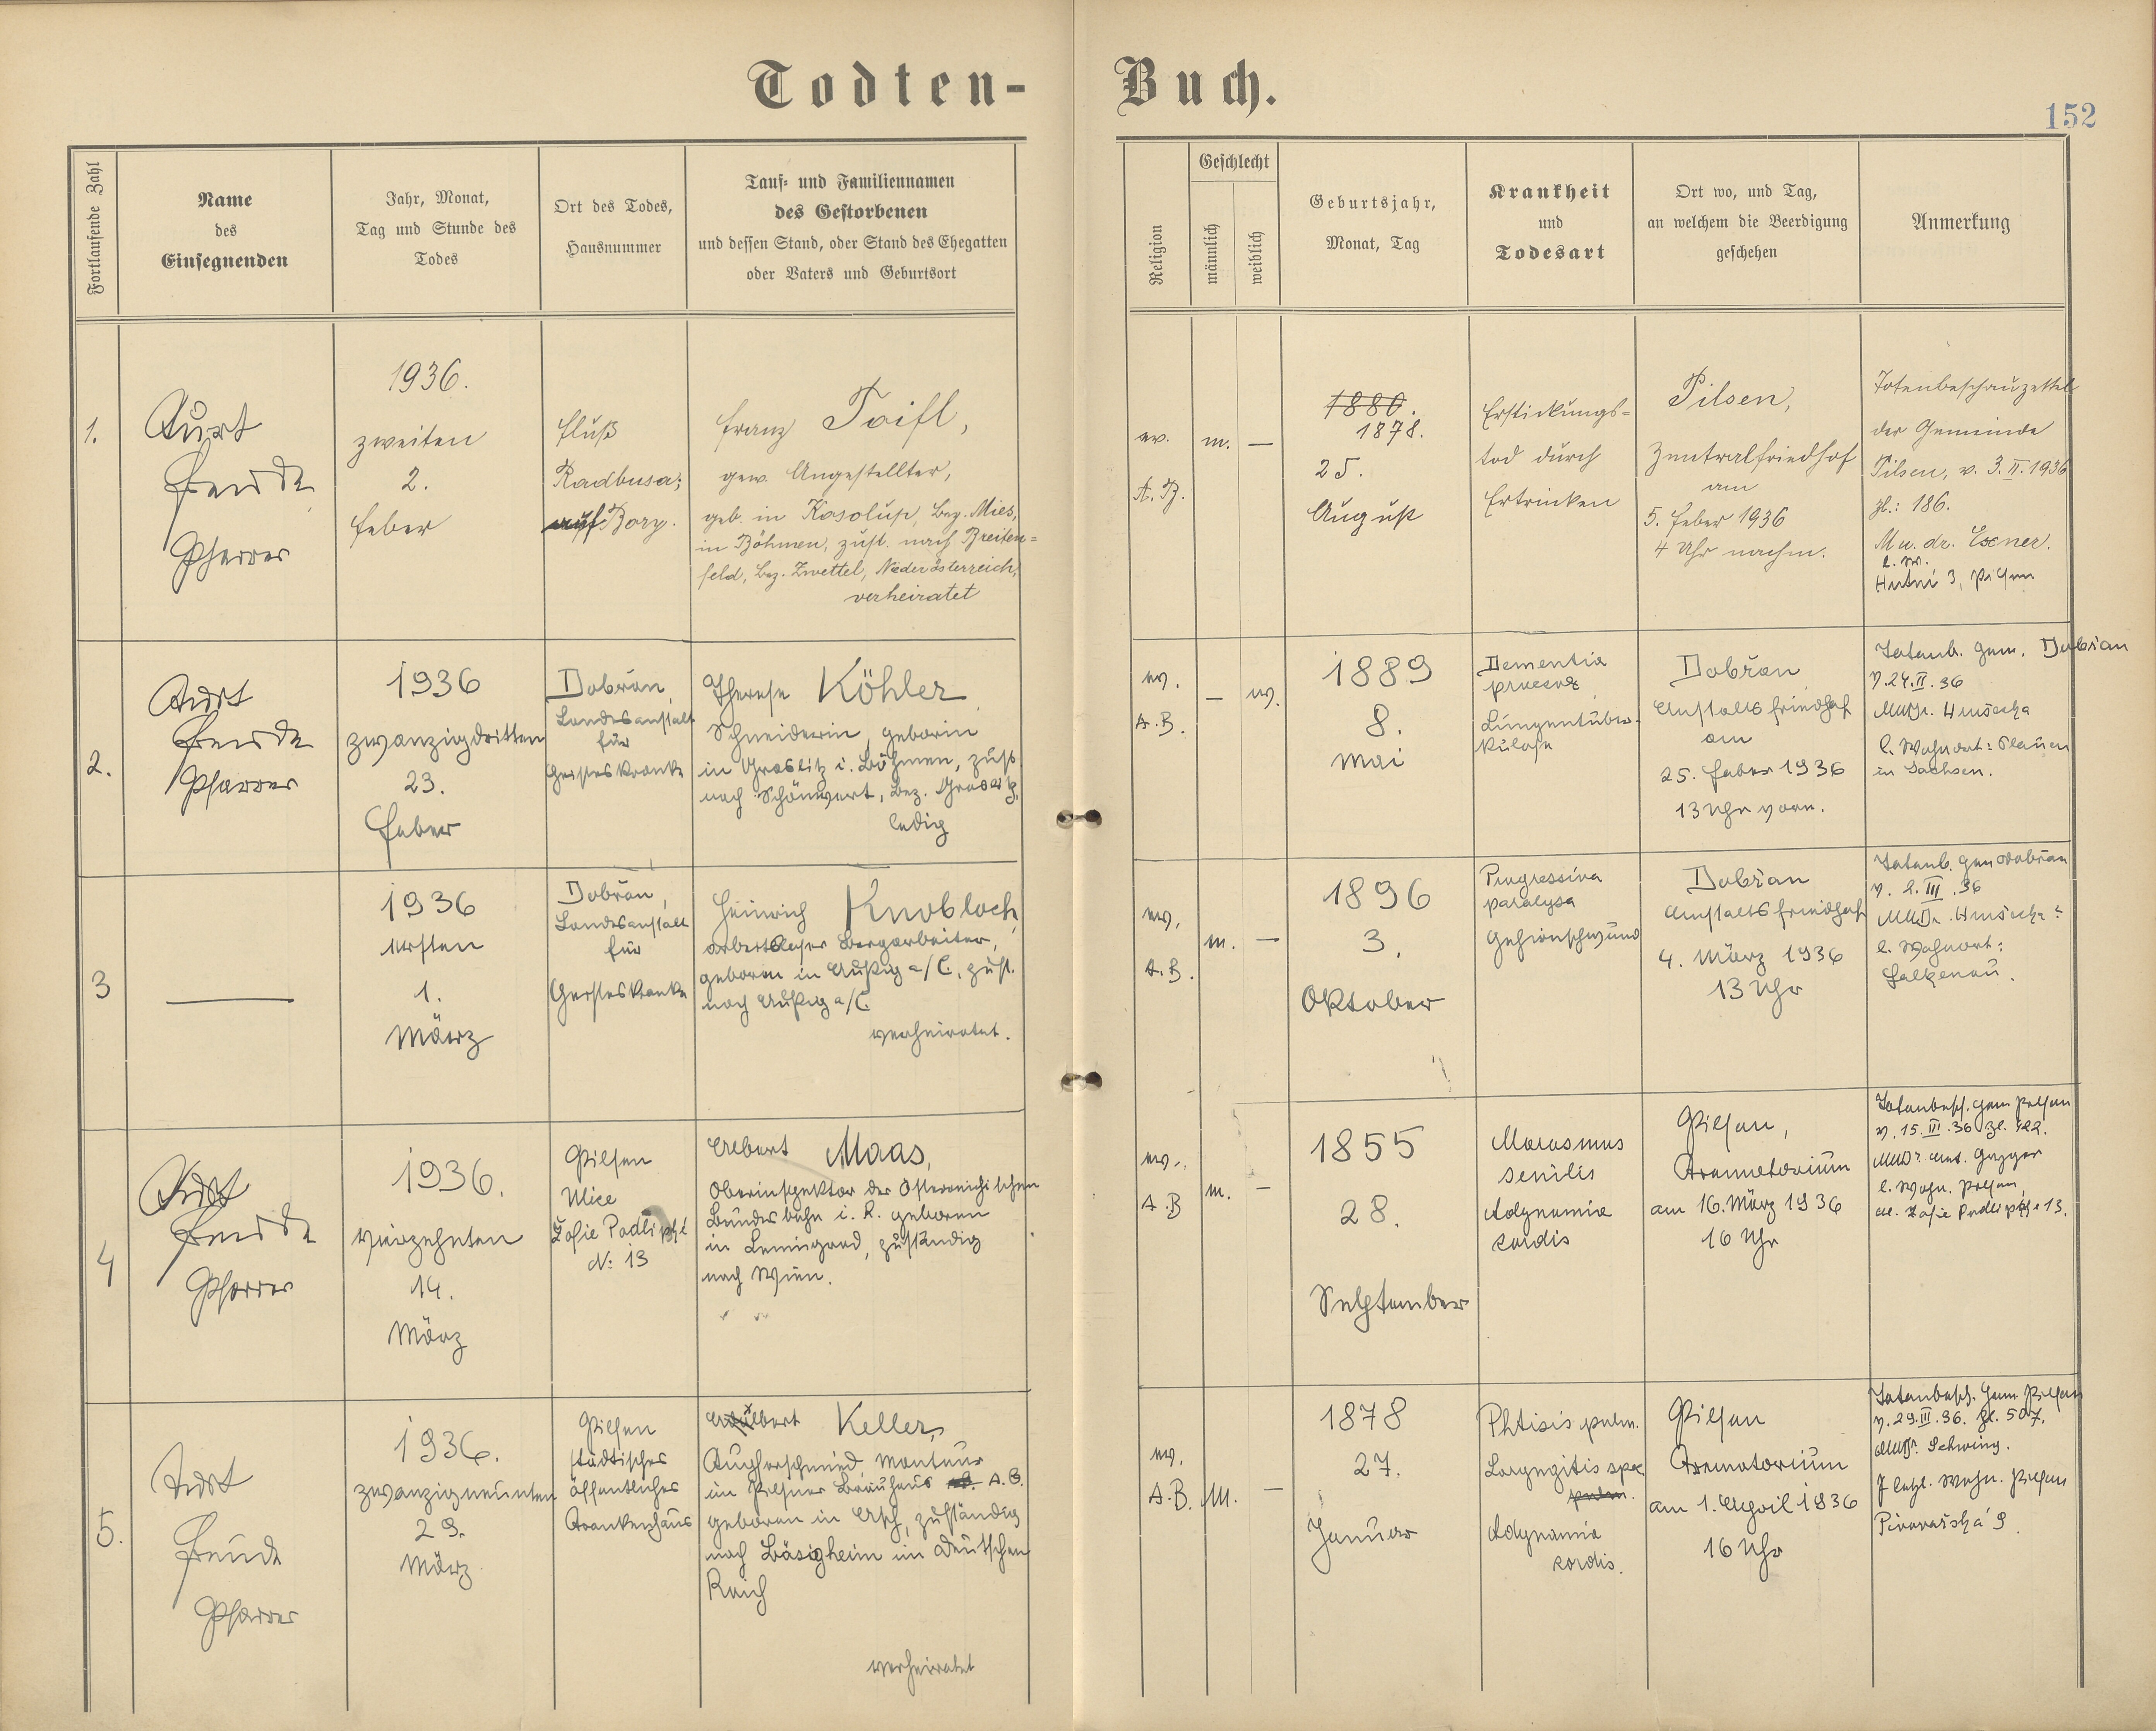 Todten-Buch.
152
Fortlaufende Zahl
Name
des
Einsegnenden
Jahr, Monat,
Tag und Stunde des
Todes
Ort des Todes,
Hausnummer
Tauf- und Familiennamen
des Gestorbenen
und dessen Stand, oder Stand des Ehegatten
oder Vaters und Geburtsort
Religion
Geschlecht
männlich
weiblich
Geburtsjahr,
Monat, Tag
Krankheit
und
Todesart
Ort wo, und Tag,
an welchem die Beerdigung
geschehen
Anmerkung
1.
Pfarrer
1936.
zweiten
2.
Feber
Fluß
Radbusa;
auf Bory.
Franz Toifl,
gew. Angestellter,
geb. in Kosolup, Bez. Mies,
in Böhmen, zust. nach Breiten=
feld, Bez. Zwettel, Niederösterreich,
verheiratet
ev.
A. B.
m.
—
1880.
1878.
25.
August
Erstickungs=
tod durch
Ertrinken
Pilsen,
Zentralfriedhof
am
5. Feber 1936
4 Uhr nachm.
Totenbeschauzettel
der Gemeinde
Pilsen, v. 3.II.1936
zl.: 186.
Mu. dr. Exner.
l. W.
Hutní 3, Pilsen
2.
Pfarrer
1936
zwanzigdritten
23.
Feber
Dobřan,
Landesanstalt
für
Geisteskranke
Therese Köhler
Schneiderin, geboren
in Graslitz i. Böhmen, zust.
nach Schönwert, Bez. Graslitz,
ledig
ev.
A.B.
—
w.
1889
8.
Mai
Dementia
praecox,
Lungentuber-
kulose
Dobřan,
Anstaltsfriedhof
am
25. Feber 1936
13 Uhr vorm.
Totenb. Gem. Dobřan
v. 24.II.36
l. Wohnort: Plauen
in Sachsen.
3
—
1936
ersten
1.
März
Dobřan,
Landesanstalt
für
Geisteskranke
Heinrich Knobloch,
arbeitsloser Bergarbeiter,
geboren in Außig a/E., zust.
nach Außig a/E.
verheiratet.
ev.
A.B.
m.
—
1896
3.
Oktober
Progressiva
paralysa
Gehirnschwund
Dobřan
Anstaltsfriedhof
4. März 1936
13 Uhr
Totenb. Gem Dobřan
v. 2.III.36
l. Wohnort:
Falkenau.
4
Pfarrer
1936.
vierzehnten
14.
März
Pilsen
Ulice
Žofie Podlipské
N: 13
Albert Maas,
Oberinspektor der Österreichischen
Bundesbahn i. R. geboren
in Leningrad, zuständig
nach Wien.
ev.
A.B
m.
—
1855
28.
September
Marasmus
senilis
Adynamia
cordis
Pilsen,
Krematorium
am 16. März 1936
16 Uhr
Totenbesch. Gem Pilsen
l. Wohn. Pilsen,
ul. Žofie Podlipské 13.
5.
Pfarrer
1936.
zwanzigneunten
29.
März
Pilsen
städtisches
öffentliches
Krankenhaus
Keller,
Kupferschmied, Monteur
im Pilsner Bräuhaus A.G.
geboren in Asch, zuständig
nach Bäsigheim im Deutschen
Reich
verheiratet
ev.
A.B.
m.
—
1878
27.
Januar
Phtisis pulm.
Laryngitis spec.
pulm.
Adynamia
cordis.
Pilsen
Krematorium
am 1. April 1936
16 Uhr
Totenbesch. Gem. Pilsen
v. 29.III.36. zl. 507.
MUDr. Schwing.
letzt. Wohn. Pilsen